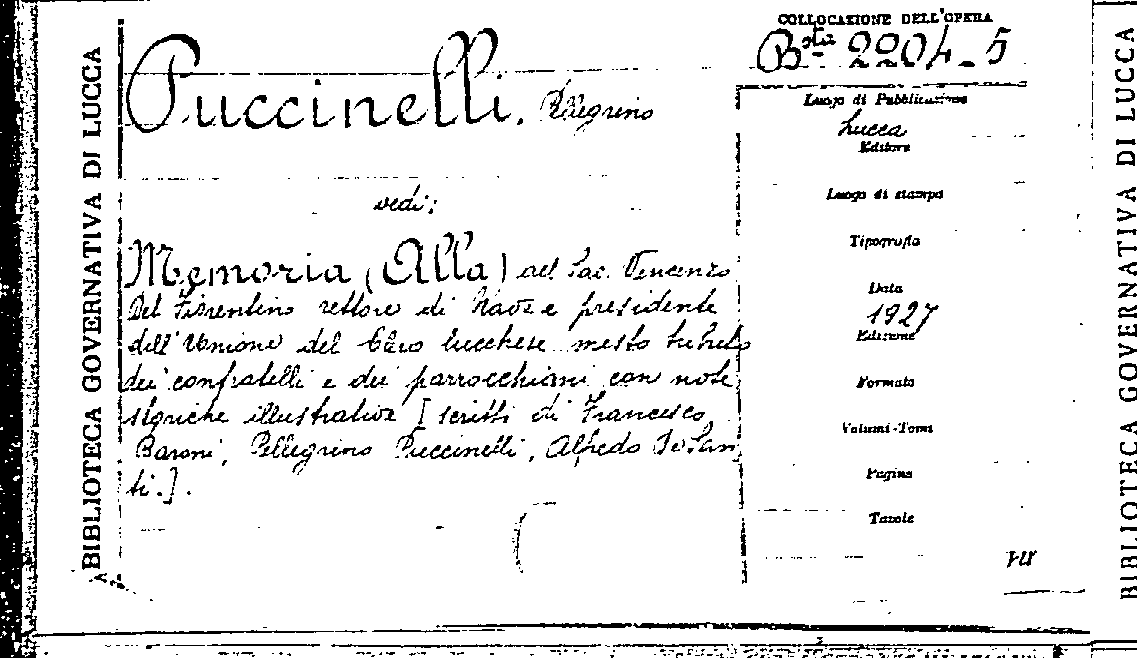 BIBLIOTECA GOVERNATIVA DI LUCCA
COLLOCAZIONE DELL'OPERA
Bta 2204-5
Puccinelli, Pellegrino
vedi:
Memoria (Alla) del Sac. Vincenzo
Del Fiorentino rettore di Nave e presidente
dell'Unione del Clero lucchese mesto tributo
dei confratelli e dei parrocchiani con note
storiche illustrative [scritti di Francesco
Baroni, Pellegrino Puccinelli, Alfredo De San
ti.].
Luogo di Pubblicazione
Lucca
Editore
Luogo di stampa
Tipografia
Data
1927
Edizione
Formato
Volumi-Tomi
Pagine
Tavole
BIBLIOTECA GOVERNATIVA DI LUCCA